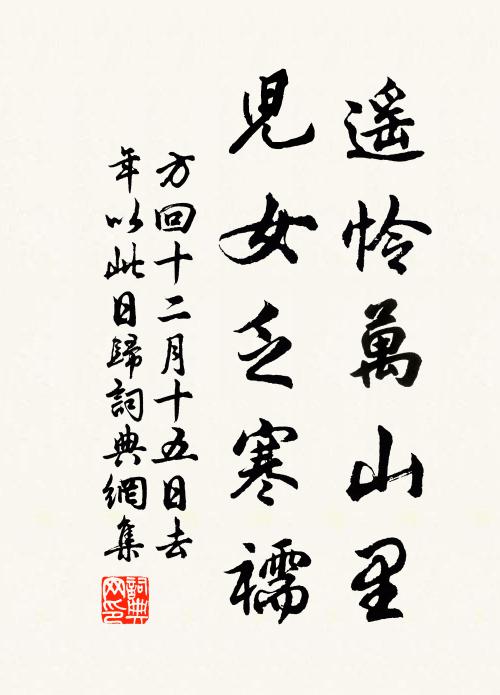 遥怜萬山里
児女乏寒襦
方回十二月十五日去
年以此日歸詞典網集
詞典
网印